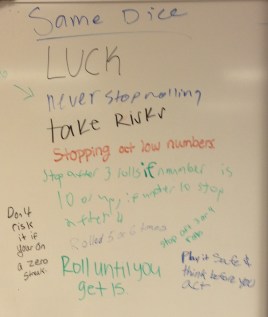 Same Dice
LUCK
never stop rolling
take Risks
Stopping at low numbers
Stop after 3 rolls if number is
10 or up, if under 10 stop
after 4
Rolled 5 or 6 times
stop on 3 or 4
Roll until you
get 15.
Don't
risk
it if
your on
a zero
streak.
Play it safe &
think before you
act